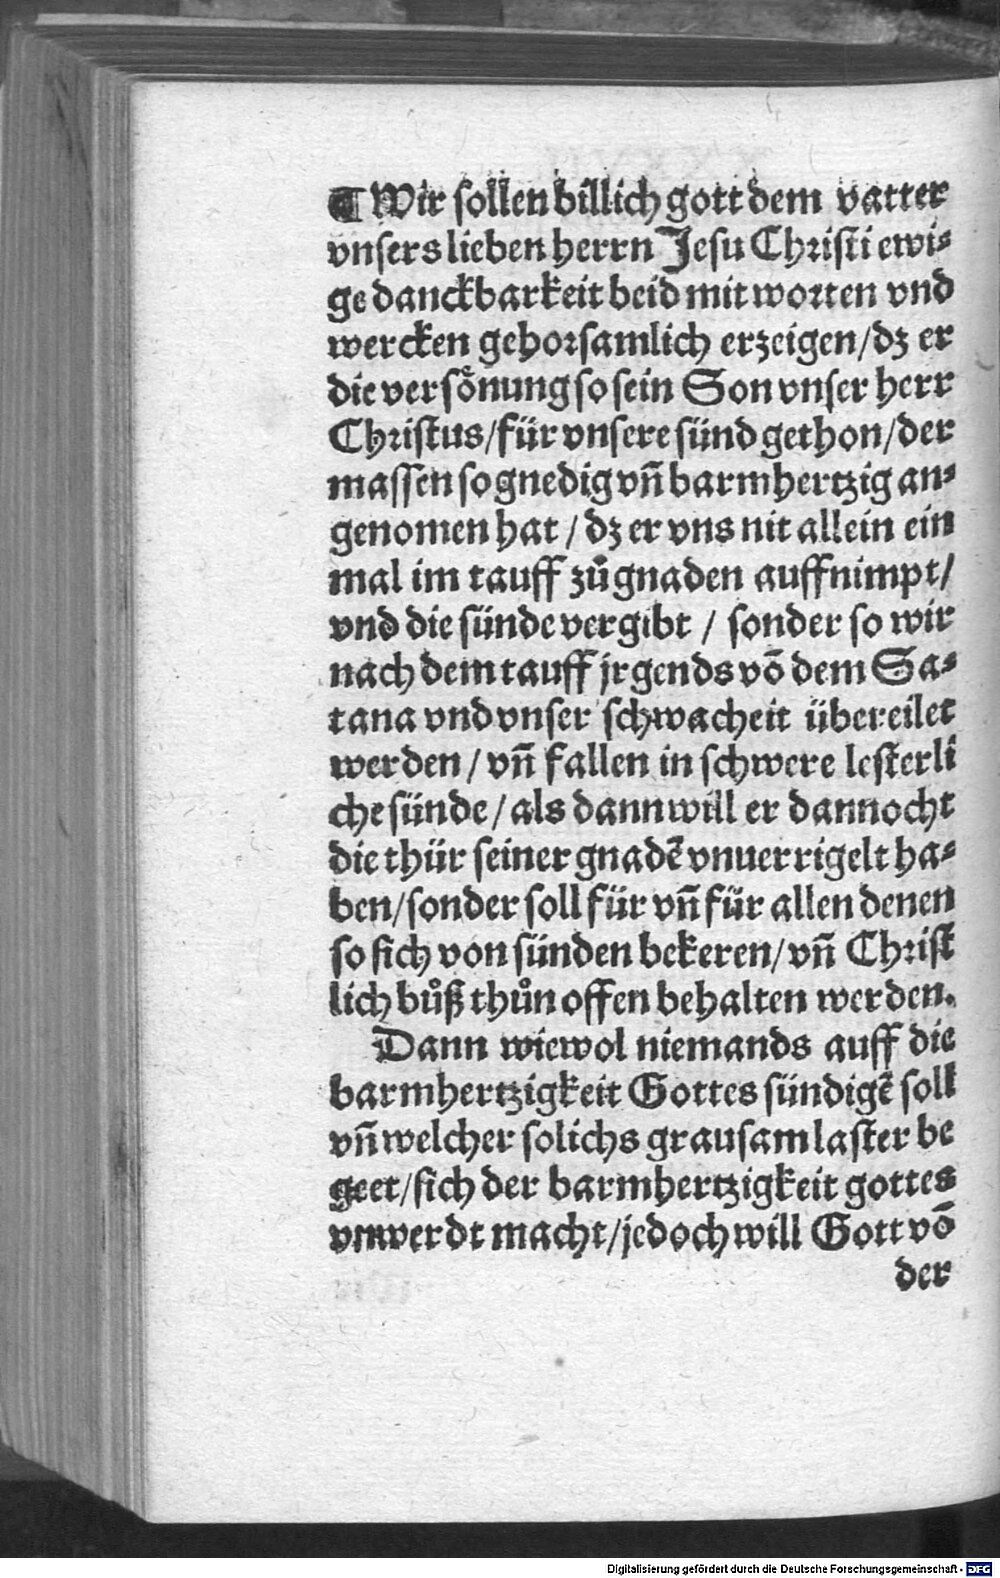 ¶ Wir sollen billich gott dem vatter
vnsers lieben herrn Jesu Christi ewi⸗
ge danckbarkeit beid mit worten vnd
wercken gehorsamlich erzeigen/dz er
die versoͤnung so sein Son vnser herr
Christus/für vnsere sünd gethon/der
massen so gnedig vn̄ barmhertzig an⸗
genomen hat / dz er vns nit allein ein
mal im tauff zuͦ gnaden auffnimpt/
vnd die sünde vergibt / sonder so wir
nach dem tauff jrgends vō dem Sa⸗
tana vnd vnser schwacheit übereilet
werden / vn̄ fallen in schwere lesterli
che sünde / als dann will er dannocht
die thür seiner gnadē vnuerrigelt ha⸗
ben/sonder soll für vn̄ für allen denen
so sich von sünden bekeren/vn̄ Christ
lich buͦß thuͦn offen behalten werden.
Dann wiewol niemands auff die
barmhertzigkeit Gottes sündigē soll
vn̄ welcher solichs grausam laster be
geet/sich der barmhertzigkeit gottes
vnwerdt macht/jedoch will Gott vō
der
Digitalisierung gefördert durch die Deutsche Forschungsgemeinschaft - DFG